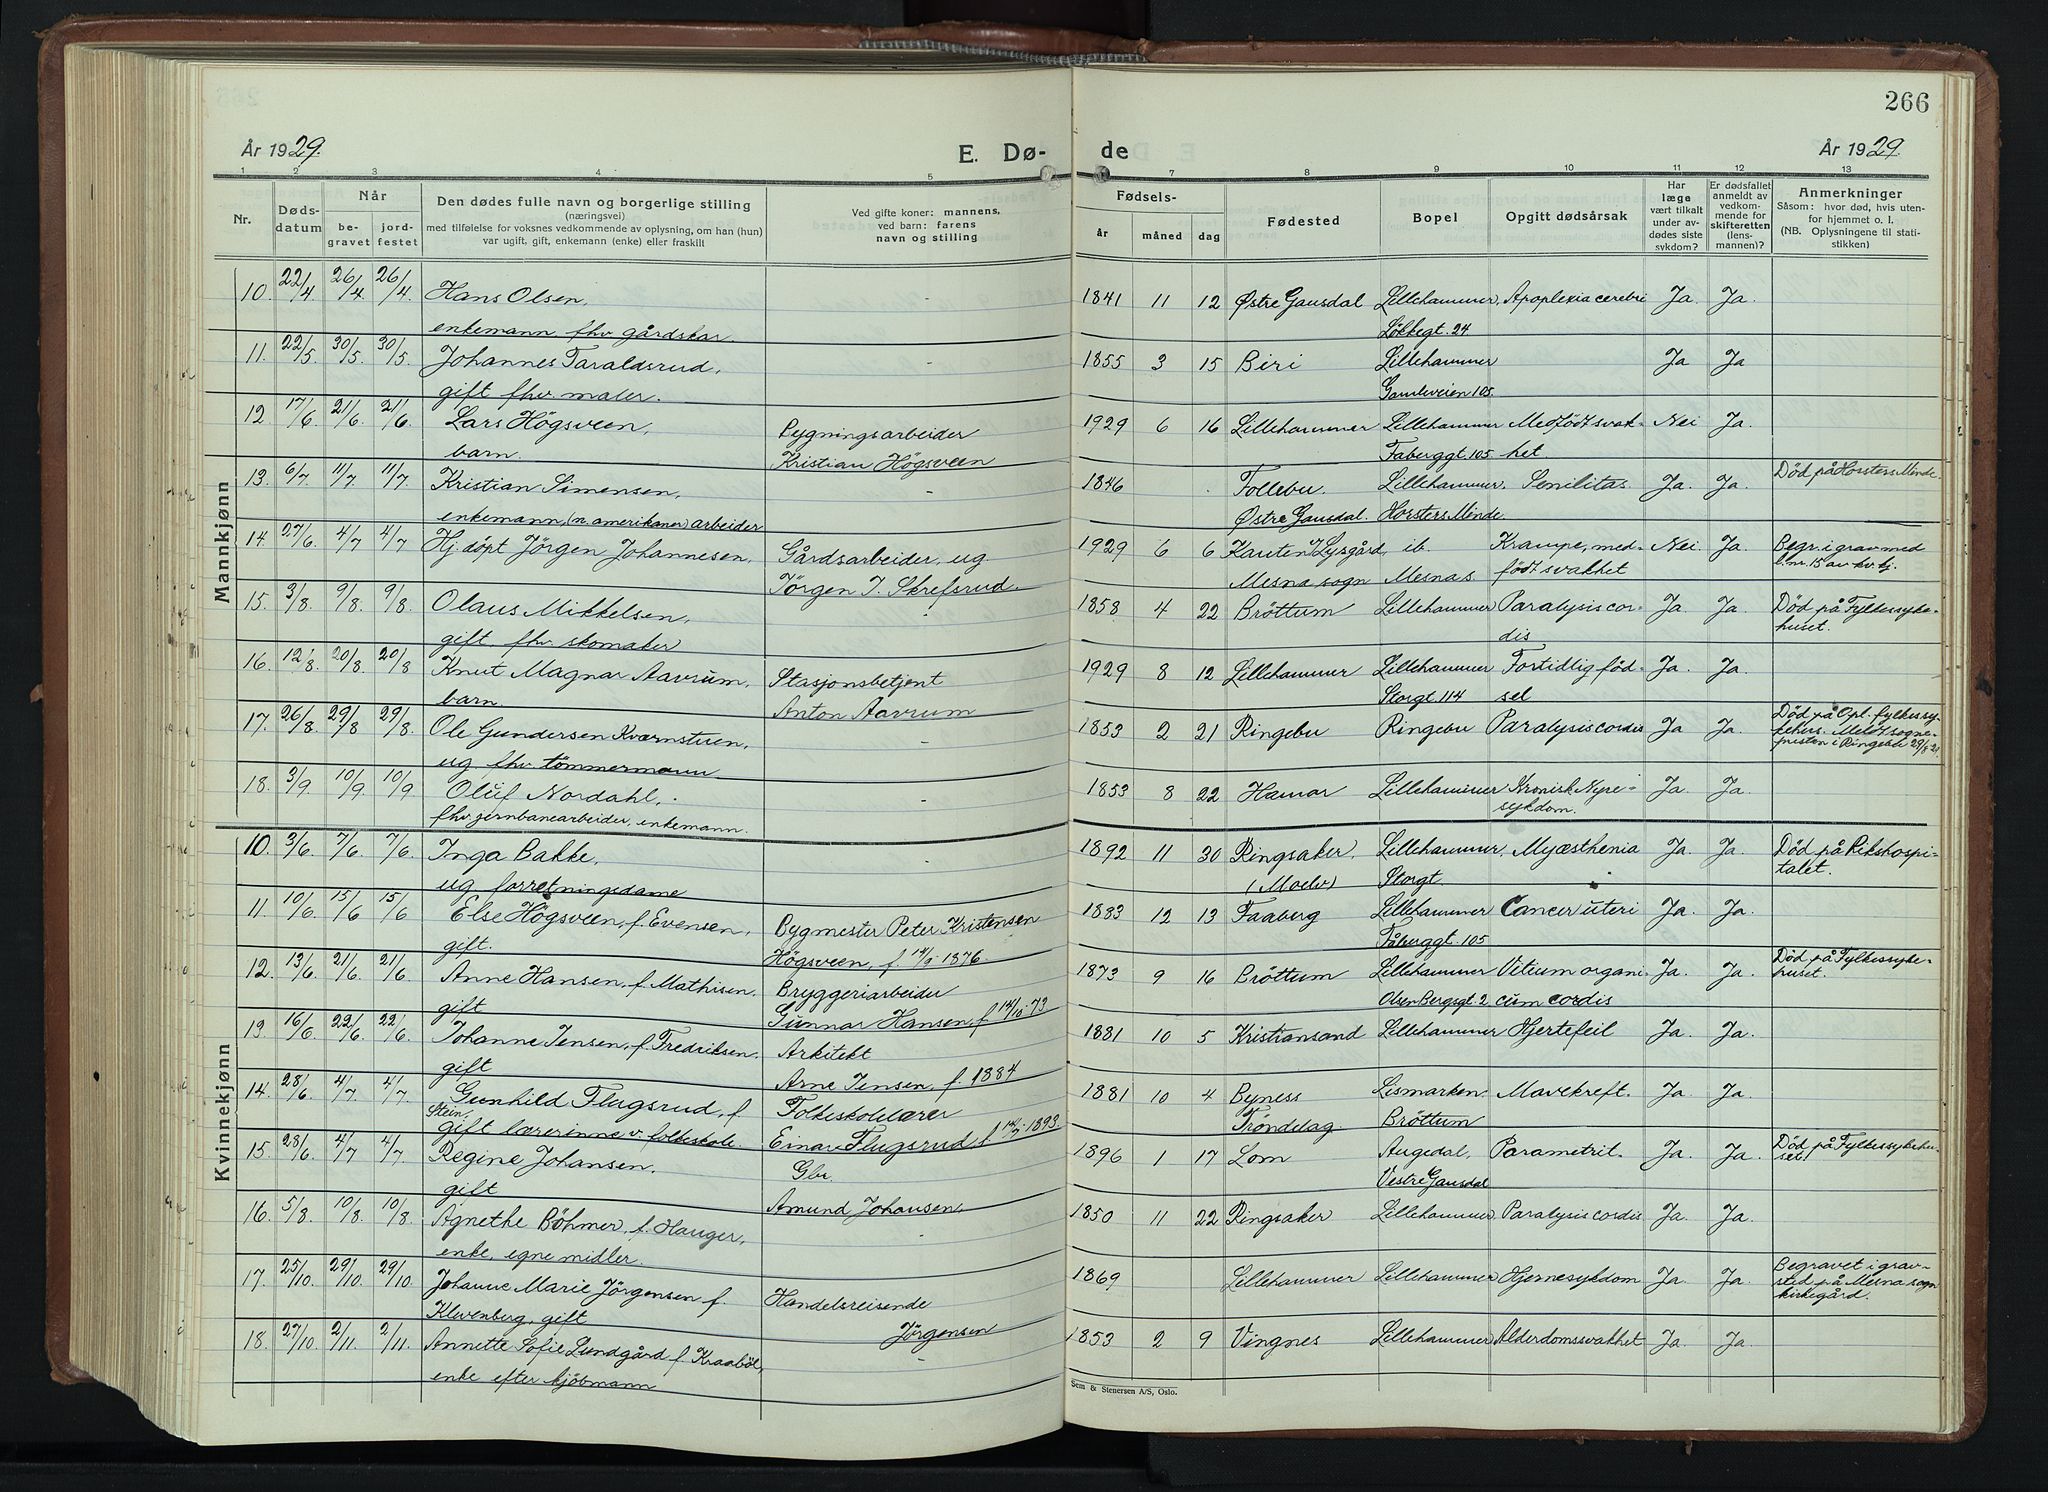 266
År 1929.
E. Dø-
de
År 1929.
1 2 3 4 5 7 8 9 10 11 12 13
Nr.
Døds-
datum
Når
be-
gravet
jord-
festet
Den dødes fulle navn og borgerlige stilling
(næringsvei)
med tilføielse for voksnes vedkommende av oplysning, om han (hun)
var ugift, gift, enkemann (enke) eller fraskilt
Ved gifte koner: mannens,
ved barn: farens
navn og stilling
Fødsels-
år
måned
dag
Fødested
Bopel
Opgitt dødsårsak
Har
læge
vært tilkalt
under av-
dødes siste
sykdom?
Er dødsfallet
anmeldt av
vedkom-
mende for
skifteretten
(lens-
mannen)?
Anmerkninger
Såsom: hvor død, hvis uten-
for hjemmet o. l.
(NB. Oplysningene til stati-
stikken)
Mannkjønn
10. 22/4 26/4 26/4. Hans Olsen, - 1841 11 12 Østre Gausdal Lillehammer, Apoplexia cerebri Ja. Ja.
enkemann, fhv gårdskar. Løkkegt. 24
11. 22/5 30/5. 30/5. Johannes Taraldsrud, - 1855 3 15 Biri Lillehammer Ja Ja
gift fhv. maler. Gamleveien 105.
12. 17/6 21/6. 21/6 Lars Högsveen, Bygningsarbeider 1929 6 16 Lillehammer Lillehammer Medfödt svak- Nei Ja.
barn. Kristian Högsveen Faberggt. 105 het
13. 6/7. 11/7. 11/7. Kristian Simensen, - 1846 Follebu. Lillehammer. Senilitas Ja. Ja. Død på Horsters Minde.
enkemann, (n. amerikaner) arbeider Østre Gausdal. Horsters Minde.
14. 27/6. 4/7 4/7 Hj. döpt Jörgen Johannesen, Gårdsarbeider, ug 1929 6 6 Lysgård, ib. Krampe, med- Nei. Ja. Begr. i grav med
Jörgen J. Skrefsrud. Mesna sogn Mesna s. födt svakhet l. nr. 15 av kv. kj.
15. 3/8. 9/8. 9/8. Olaus Mikkelsen, - 1858 4 22 Bröttum Lillehammer Paralysis cor- Ja Ja. Død på Fylkessyke-
gift, fhv. skomaker dis huset.
16. 12/8. 20/8 20/8 Knut Magnar Aavrum, Stasjonsbetjent 1929 8 12 Lillehammer Lillehammer Fortidlig föd- Ja. Ja.
barn Anton Aavrum Storgt. 114 sel
17. 26/8 29/8 29/8. Ole Gundersen Kværnstuen, - 1853 2 21 Ringebu Ringebu Paralysis cordis Ja Ja. Død på Opl. fylkessy-
ug fhv. tömmermann kehus. Meldt sogne-
presten i Ringebu 29/8 29.
18. 3/9. 10/9 10/9 Oluf Nordahl, - 1853 8 22 Hamar Lillehammer Kronisk Nyre- Ja Ja.
fhv jernbanearbeider, enkemann. sykdom.
Kvinnekjønn
10. 3/6. 7/6 7/6. Inga Bakke, - 1892 11 30 Ringsaker, Lillehammer, Myæsthenia Ja. Ja. Død på Rikshospi-
ug forretningsdame (Moelv) Storgt. talet.
11. 10/6 15/6 15/6 Else Högsveen, f. Evensen, Bygmester Peter Kristensen 1883 12 13 Faaberg Lillehammer Cancer uteri Ja. Ja.
gift. Högsveen, f. 14/9 1876. Fåberggt. 105
12. 13/6. 21/6. 21/6. Anne Hansen, f. Mathisen, Bryggeriarbeider 1873 9 16 Bröttum Lillehammer Vitium organi- Ja. Ja. Død på Fylkessyke-
gift Gunnar Hansen f 14/10-73 Olsen Bergsgt. 2 cum cordis huset.
13. 16/6 22/6. 22/6. Johanne Jensen, f. Fredriksen, Arkitekt 1881 10 5 Kristiansand Lillehammer Hjertefeil Ja. Ja.
gift Arne Jensen, f. 1884
14. 28/6 4/7. 4/7. Gunhild Flugsrud, f. Folkeskolelærer 1881 10 4 Byness Lismarken Mavekreft. Ja. Ja
Stein, gift lærerinne v. folkeskole. Einar Flugsrud f. 14/7. 1893. Tröndelag Bröttum
15. 28/6 4/7. 4/7. Regine Johansen. Gbr. 1896 1 17 Lom Augedal, Parametrit. Ja. Ja. Død på Fylkessykehu-
gift Amund Johansen Vestre Gausdal set.
16. 5/8. 10/8. 10/8. Agnethe Böhmer, f. Hauger, - 1850 11 22 Ringsaker Lillehammer Paralysis cordis Ja. Ja.
enke, egne midler.
17. 25/10 29/10. 29/10 Johanne Marie Jörgensen f. Handelsreisende 1869 Lillehammer Lillehammer Hjernesykdom Ja. Ja. Begravet i grav-
Klevenberg, gift Jörgensen sted på Mesna sogn
kirkegård.
18. 27/10. 2/11. 2/11. Annette Sofie Lundgård f. Kraaböl, - 1853 2 9 Vingnes Lillehammer Alderdomssvakhet Ja. Ja.
enke efter kjöbmann
Sem & Stenersen A/S, Oslo.